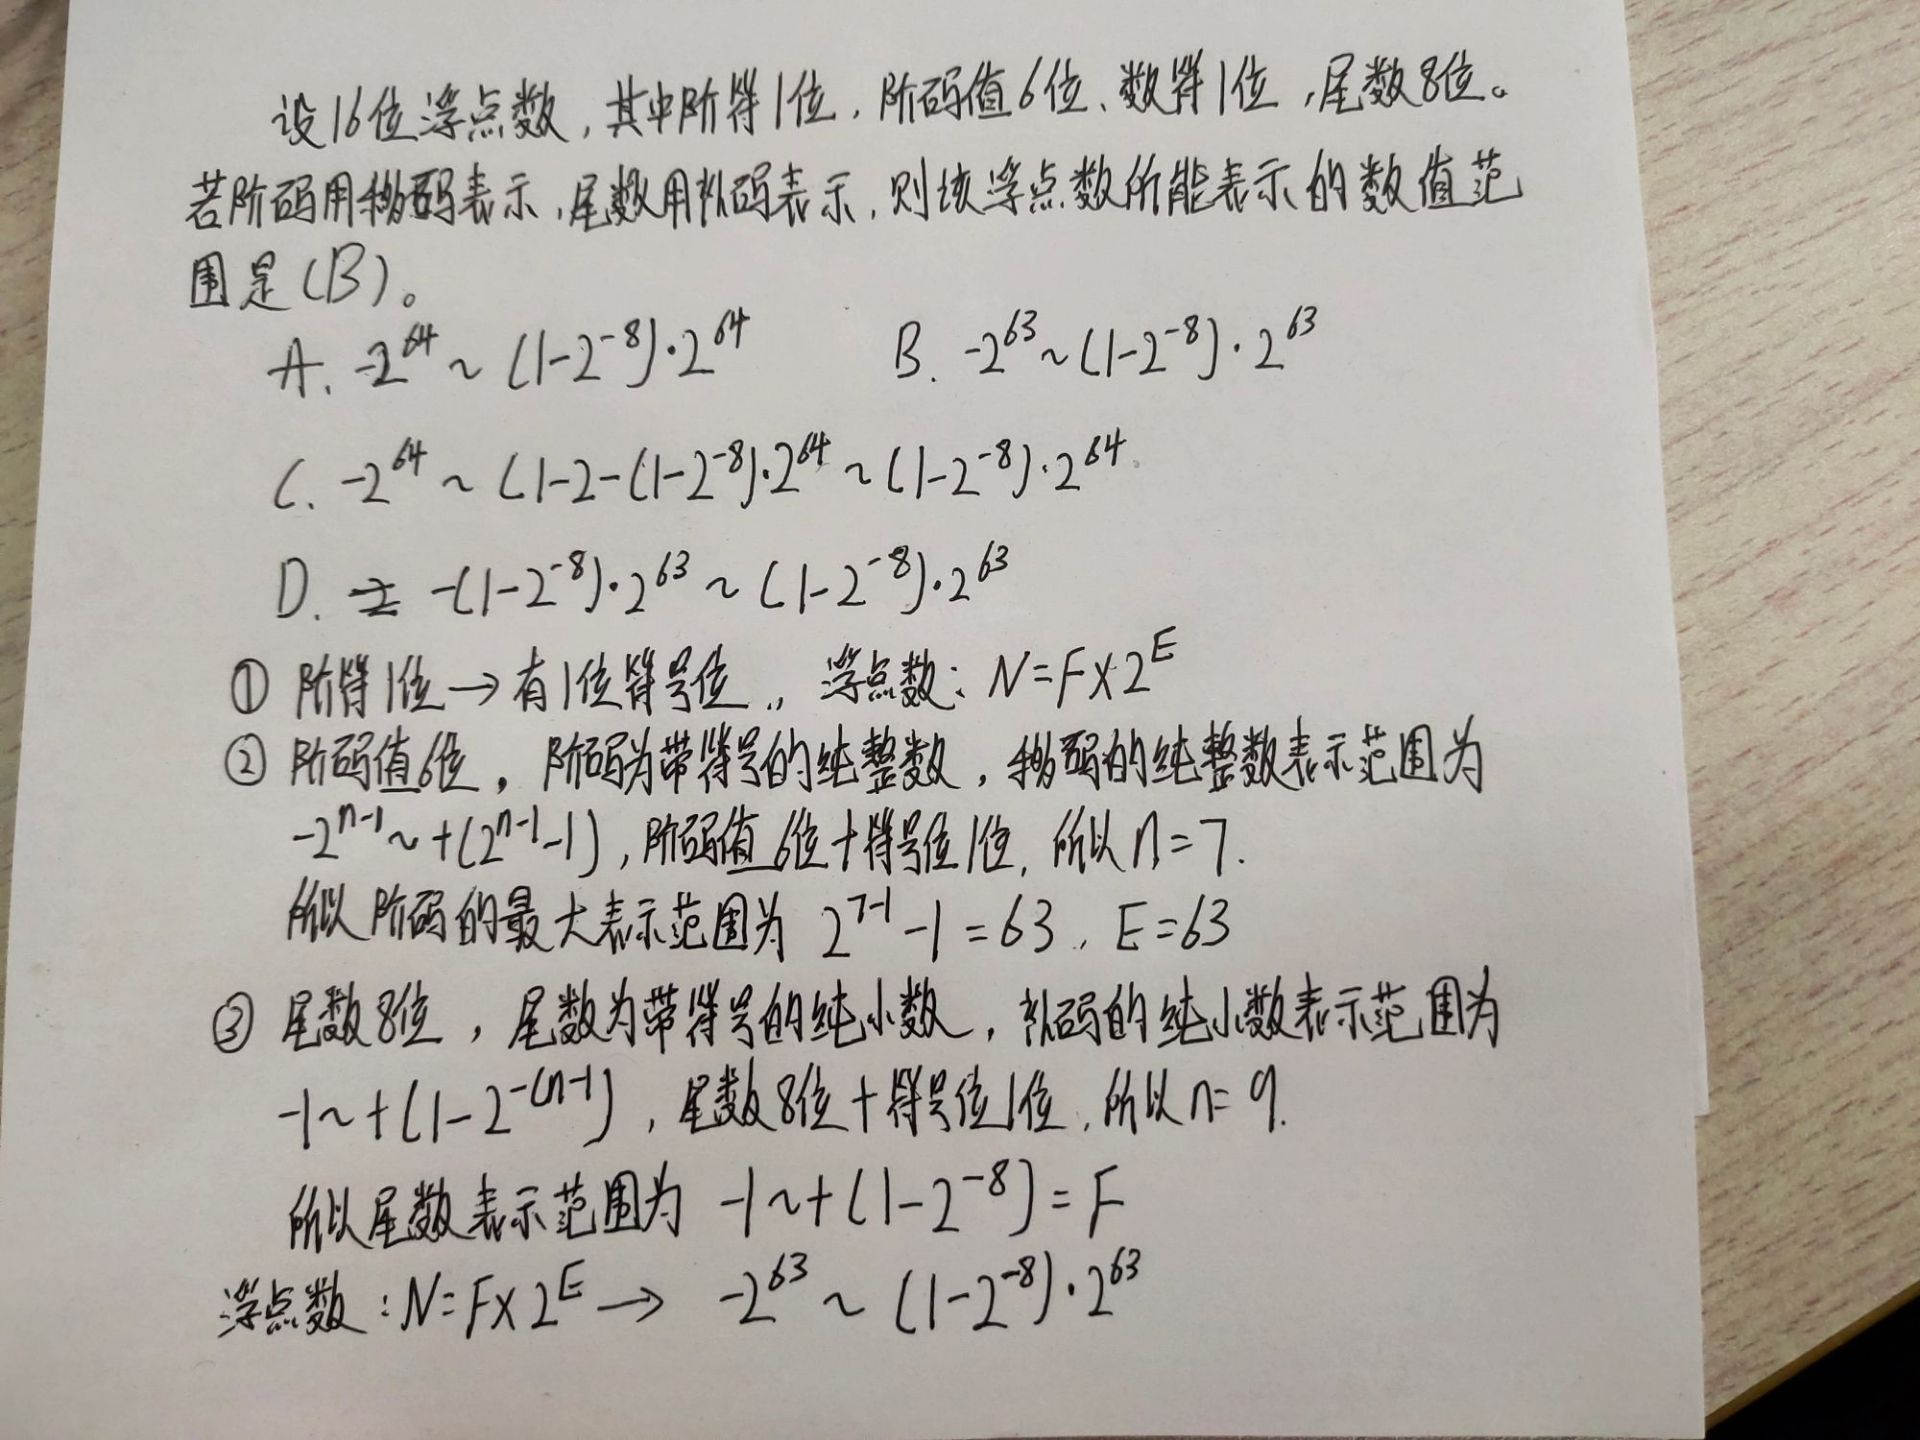 设16位浮点数，其中阶符1位，阶码值6位、数符1位，尾数8位。
若阶码用移码表示，尾数用补码表示，则该浮点数所能表示的数值范
围是(B)。
A. -2^64 ~ (1-2^-8)·2^64 B. -2^63 ~ (1-2^-8)·2^63
C. -2^64 ~ (1-2-(1-2^-8)·2^64 ~ (1-2^-8)·2^64
D. -(1-2^-8)·2^63 ~ (1-2^-8)·2^63
① 阶符1位→有1位符号位，浮点数：N=F×2^E
② 阶码值6位，阶码为带符号的纯整数，移码的纯整数表示范围为
-2^n-1 ~ +(2^n-1 -1)，阶码值6位+符号位1位，所以n=7.
所以阶码的最大表示范围为 2^7-1 -1=63，E=63
③ 尾数8位，尾数为带符号的纯小数，补码的纯小数表示范围为
-1~+(1-2^-(n-1))，尾数8位+符号位1位，所以n=9.
所以尾数表示范围为 -1~+(1-2^-8)=F
浮点数：N=F×2^E → -2^63 ~ (1-2^-8)·2^63